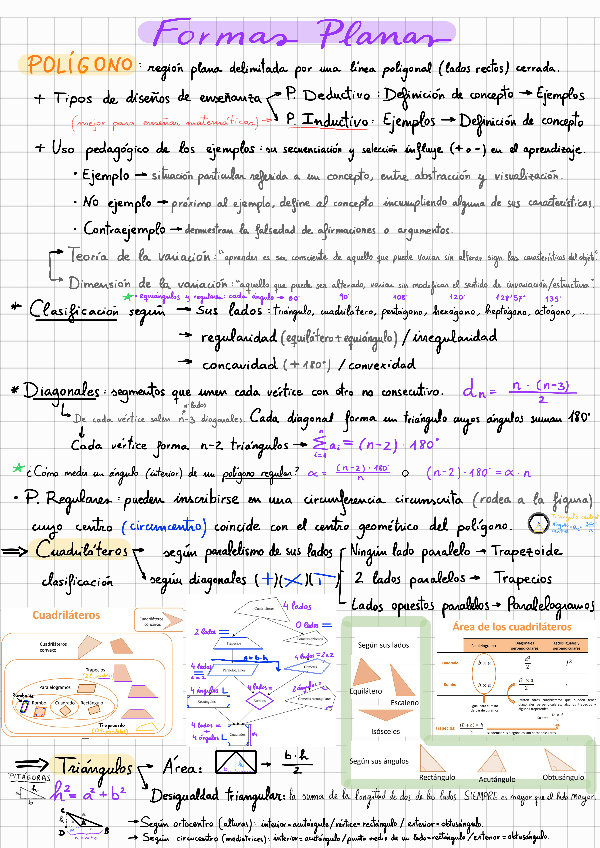 Formas Planas
POLÍGONO: región plana delimitada por una línea poligonal (lados rectos) cerrada.
+ Tipos de diseños de enseñanza → P. Deductivo: Definición de concepto → Ejemplos
(mejor para enseñar matemáticas) → P. Inductivo: Ejemplos → Definición de concepto
+ Uso pedagógico de los ejemplos: su secuenciación y selección influye (+ o -) en el aprendizaje.
· Ejemplo → situación particular referida a un concepto, entre abstracción y visualización.
· No ejemplo → próximo al ejemplo, define al concepto incumpliendo alguna de sus características.
· Contraejemplo → demuestran la falsedad de afirmaciones o argumentos.
Teoría de la variación: "aprender es ser consciente de aquello que puede variar sin alterar sign. las características del objeto"
Dimensión de la variación: "aquello que puede ser alterado, variar sin modificar el sentido de
* equiángulos y regulares: cada ángulo → 60° 90° 108° 120° 128'57° 135°
* Clasificación según → sus lados: triángulo, cuadrilátero, pentágono, hexágono, heptágono, octógono,...
→ regularidad (equilátero + equiángulo) / irregularidad
→ concavidad (+180°) / convexidad
* Diagonales: segmentos que unen cada vértice con otro no consecutivo. dn = n · (n-3) / 2
nº lados
De cada vértice salen n-3 diagonales. Cada diagonal forma un triángulo cuyos ángulos suman 180°
Cada vértice forma n-2 triángulos → Σ ai = (n-2) · 180°
* ¿Cómo medir un ángulo (interior) de un polígono regular? α = (n-2) · 180° / n o (n-2) · 180° = α · n
· P. Regulares: pueden inscribirse en una circunferencia circunscrita (rodea a la figura)
cuyo centro (circuncentro) coincide con el centro geométrico del polígono.
⇒ Cuadriláteros → según paralelismo de sus lados Ningún lado paralelo → Trapezoide
clasificación según diagonales (+)(X)(T) 2 lados paralelos → Trapecios
Lados opuestos paralelos → Paralelogramos
Cuadriláteros
Cuadriláteros cóncavos
Cuadriláteros convexo
Trapecios
Paralelogramos
Rombo Cuadrado Rectángulo
4 lados
2 lados =
0 lados =
a = b · h
4 lados =
4 ángulos L
4 lados =
4 lados = +
4 ángulos L
Según sus lados
Equilátero
Escaleno
Isósceles
Según sus ángulos
Rectángulo
Acutángulo
Obtusángulo
Área de los cuadriláteros
Cuadrado
Rombo
⇒ Triángulos → Área: → b · h / 2
PITÁGORAS
h² = a² + b²
Desigualdad triangular: la suma de la longitud de dos de los lados SIEMPRE es mayor que el lado mayor.
→ Según ortocentro (alturas): interior = acutángulo / vértice = rectángulo / exterior = obtusángulo.
→ Según circuncentro (mediatrices): interior = acutángulo / punto medio de un lado = rectángulo / exterior = obtusángulo.